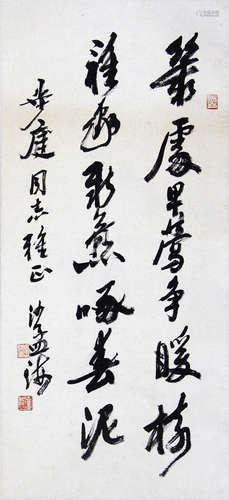 幾處早鶯爭暖樹
誰家新燕啄春泥
華庭同志雅正
沙孟海